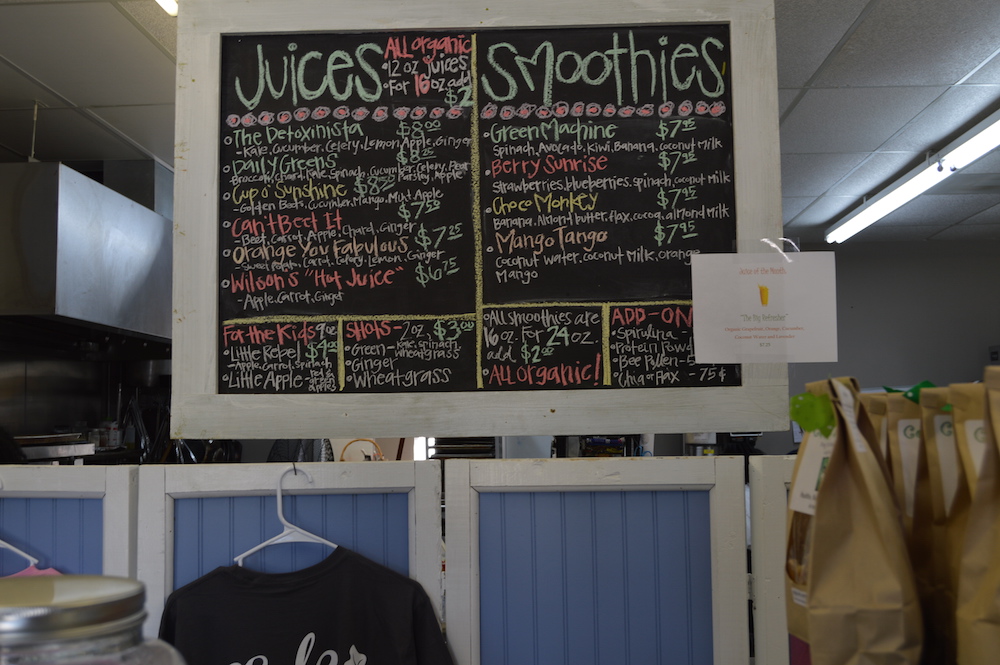 Juices
ALL organic
°12 oz juices
°For 16 oz. add
$2
°The Detoxinista $8.00
- Kale, Cucumber, Celery, Lemon, Apple, Ginger
°Daily Greens $8.25
Broccoli, Chard, Kale, Spinach, Cucumber, Celery, Pear
Parsley, Apple
°Cup o' Sunshine $8.25
- Golden Beets, Cucumber, Mango, Mint, Apple
°Can't Beet It $7.25
- Beet, Carrot, Apple, Chard, Ginger
°Orange You Fabulous $7.25
- Sweet Potato, Carrot, Celery, Lemon, Ginger
°Wilson's "Hot Juice" $6.75
- Apple, Carrot, Ginger
For the Kids 9oz
°Little Rebel $4
- Apple, Carrot, Spinach
°Little Apple - red & green apples
SHOTS - 2 oz, $3.00
°Green - Kale, spinach, wheatgrass
°Ginger
°Wheatgrass
Smoothies
°Green Machine $7.95
Spinach, Avocado, Kiwi, Banana, Coconut Milk
°Berry Sunrise $7.95
Strawberries, blueberries, spinach, coconut milk
°Choco Monkey $7.95
Banana, Almond butter, flax, cocoa, almond milk
°Mango Tango $7.95
Coconut water, coconut milk, orange
Mango
°All smoothies are
16 oz. For 24 oz.
add $2.00
°ALL organic!
ADD-ON
°Spirulina -
°Protein Powd
°Bee Pollen - 5
°Chia or Flax - 75¢
Juice of the Month
"The Big Refresher"
Organic Grapefruit, Orange, Cucumber,
Coconut Water and Lavender
$7.25